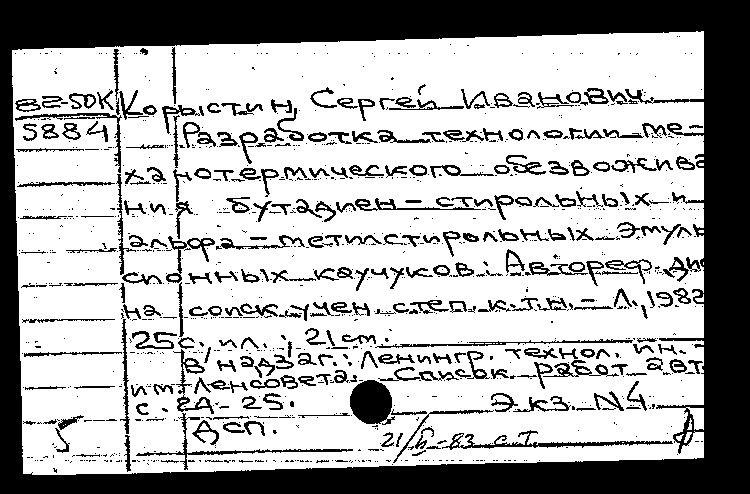 82-50К Корыстин, Сергей Иванович.
5884 Разработка технологии ме-
ханотермического обезвожива
ния бутадиен-стирольных и
альфа-метилстирольных эмуль
сионных каучуков: Автореф. дис
на соиск. учен. степ. к.т.н. - Л., 1982
25с. ил.; 21 см.
В надзаг.: Ленингр. технол. ин.-
им. Ленсовета. Список работ авт
с. 24-25. Экз. N4
5 ДСП.
21/II-83 с.т.